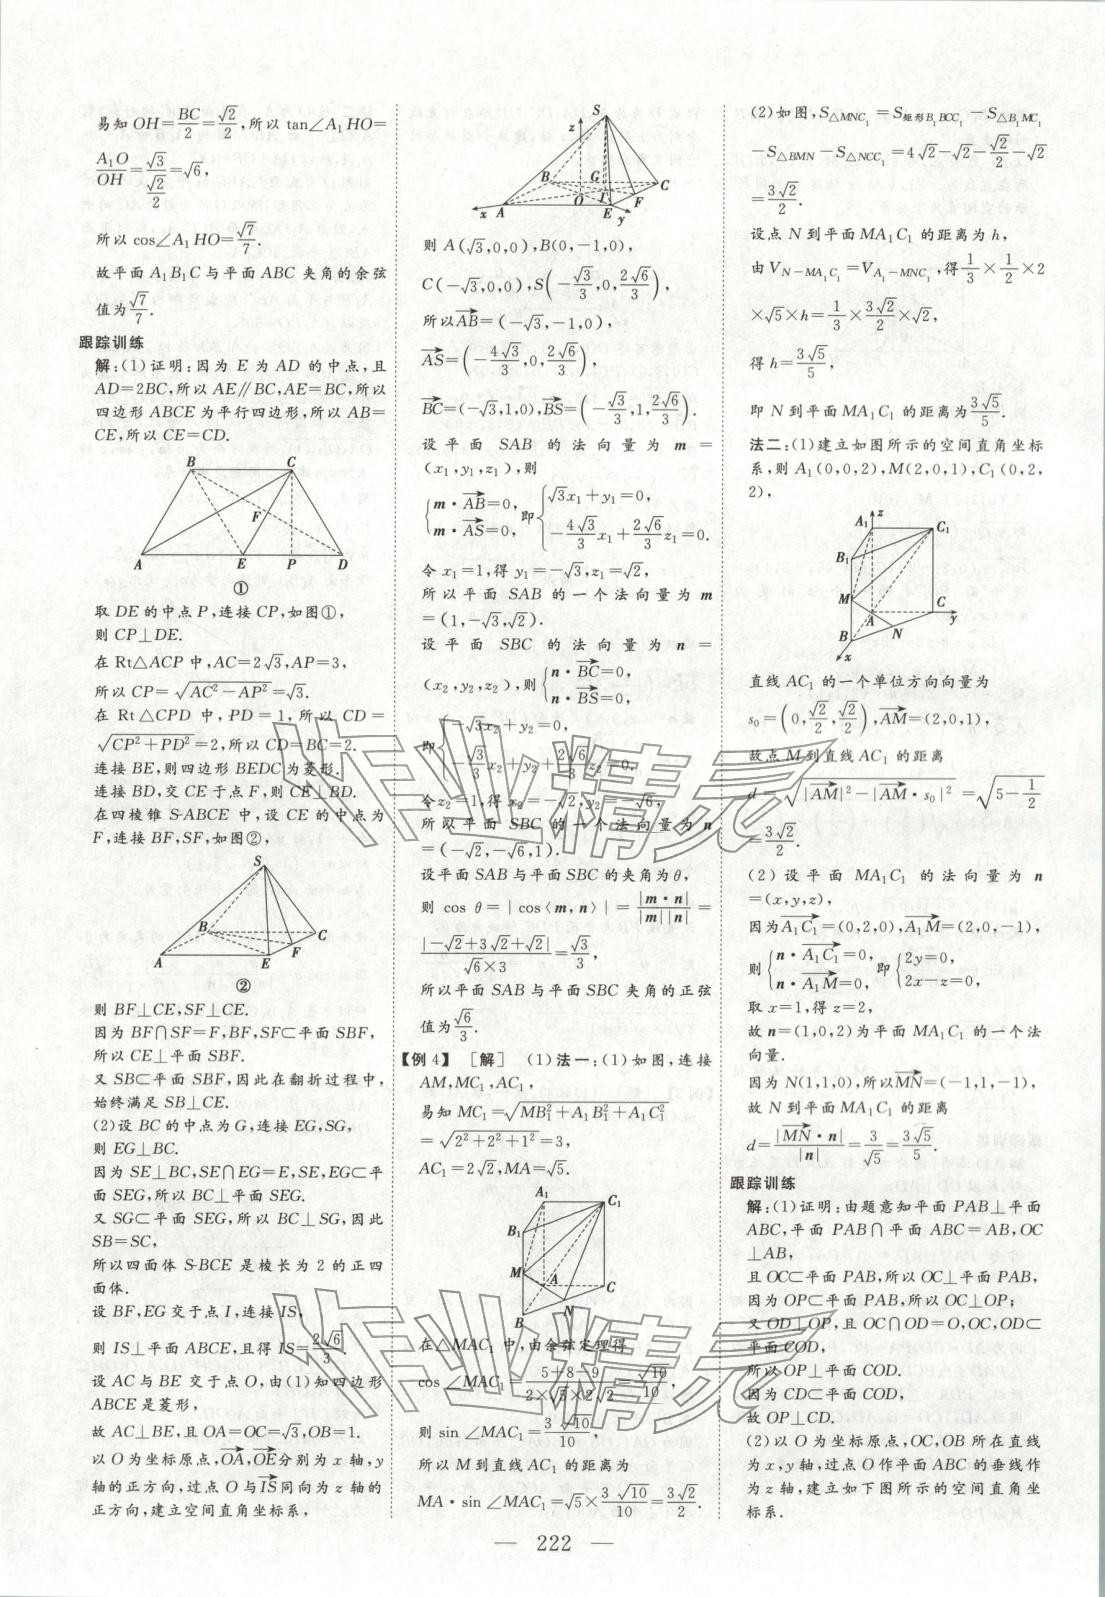 易知OH=BC/2=√2/2,所以tan∠A₁HO=
A₁O/OH=√3/(√2/2)=√6,
所以cos∠A₁HO=√7/7.
故平面A₁B₁C与平面ABC夹角的余弦
值为√7/7.
跟踪训练
解:(1)证明:因为E为AD的中点,且
AD=2BC,所以AE∥BC,AE=BC,所以
四边形ABCE为平行四边形,所以AB=
CE,所以CE=CD.
B C F A E P D
①
取DE的中点P,连接CP,如图①,
则CP⊥DE.
在Rt△ACP中,AC=2√3,AP=3,
所以CP=√(AC²-AP²)=√3.
在Rt△CPD中,PD=1,所以CD=
√(CP²+PD²)=2,所以CD=BC=2.
连接BE,则四边形BEDC为菱形.
连接BD,交CE于点F,则CE⊥BD.
在四棱锥S-ABCE中,设CE的中点为
F,连接BF,SF,如图②,
S B C F A E
②
则BF⊥CE,SF⊥CE.
因为BF∩SF=F,BF,SF⊂平面SBF,
所以CE⊥平面SBF.
又SB⊂平面SBF,因此在翻折过程中,
始终满足SB⊥CE.
(2)设BC的中点为G,连接EG,SG,
则EG⊥BC.
因为SE⊥BC,SE∩EG=E,SE,EG⊂平
面SEG,所以BC⊥平面SEG.
又SG⊂平面SEG,所以BC⊥SG,因此
SB=SC,
所以四面体S-BCE是棱长为2的正四
面体.
设BF,EG交于点I,连接IS,
则IS⊥平面ABCE,且得IS=2√6/3.
设AC与BE交于点O,由(1)知四边形
ABCE是菱形,
故AC⊥BE,且OA=OC=√3,OB=1.
以O为坐标原点,OA→,OE→分别为x轴,y
轴的正方向,过点O与IS→同向为z轴的
正方向,建立空间直角坐标系,
S z B G C O I F x A E y
则A(√3,0,0),B(0,-1,0),
C(-√3,0,0),S(-√3/3,0,2√6/3),
所以AB→=(-√3,-1,0),
AS→=(-4√3/3,0,2√6/3),
BC→=(-√3,1,0),BS→=(-√3/3,1,2√6/3).
设平面SAB的法向量为m=
(x₁,y₁,z₁),则
{m·AB→=0, m·AS→=0, 即{√3x₁+y₁=0, -4√3/3x₁+2√6/3z₁=0.
令x₁=1,得y₁=-√3,z₁=√2,
所以平面SAB的一个法向量为m
=(1,-√3,√2).
设平面SBC的法向量为n=
(x₂,y₂,z₂),则{n·BC→=0, n·BS→=0,
即{-√3x₂+y₂=0, -√3/3x₂+y₂+2√6/3z₂=0.
令z₂=1,得x₂=-√2,y₂=-√6,
所以平面SBC的一个法向量为n
=(-√2,-√6,1).
设平面SAB与平面SBC的夹角为θ,
则cosθ=|cos⟨m,n⟩|=|m·n|/|m||n|=
|-√2+3√2+√2|/(√6×3)=√3/3,
所以平面SAB与平面SBC夹角的正弦
值为√6/3.
【例4】 [解] (1)法一:(1)如图,连接
AM,MC₁,AC₁,
易知MC₁=√(MB₁²+A₁B₁²+A₁C₁²)
=√(2²+2²+1²)=3,
AC₁=2√2,MA=√5.
A₁ C₁ B₁ M A C N B
在△MAC₁中,由余弦定理得
cos∠MAC₁=(5+8-9)/(2×√5×2√2)=√10/10,
则sin∠MAC₁=3√10/10,
所以M到直线AC₁的距离为
MA·sin∠MAC₁=√5×3√10/10=3√2/2.
(2)如图,S△MNC₁=S矩形B₁BCC₁-S△B₁MC₁
-S△BMN-S△NCC₁=4√2-√2-√2/2-√2
=3√2/2.
设点N到平面MA₁C₁的距离为h,
由V N-MA₁C₁=V A₁-MNC₁,得1/3×1/2×2
×√5×h=1/3×3√2/2×√2,
得h=3√5/5,
即N到平面MA₁C₁的距离为3√5/5.
法二:(1)建立如图所示的空间直角坐标
系,则A₁(0,0,2),M(2,0,1),C₁(0,2,
2),
z A₁ C₁ B₁ M A C y N B x
直线AC₁的一个单位方向向量为
s₀=(0,√2/2,√2/2),AM→=(2,0,1),
故点M到直线AC₁的距离
d=√(|AM→|²-|AM→·s₀|²)=√(5-1/2)
=3√2/2.
(2)设平面MA₁C₁的法向量为n
=(x,y,z),
因为A₁C₁→=(0,2,0),A₁M→=(2,0,-1),
则{n·A₁C₁→=0, n·A₁M→=0, 即{2y=0, 2x-z=0,
取x=1,得z=2,
故n=(1,0,2)为平面MA₁C₁的一个法
向量.
因为N(1,1,0),所以MN→=(-1,1,-1),
故N到平面MA₁C₁的距离
d=|MN→·n|/|n|=3/√5=3√5/5.
跟踪训练
解:(1)证明:由题意知平面PAB⊥平面
ABC,平面PAB∩平面ABC=AB,OC
⊥AB,
且OC⊂平面PAB,所以OC⊥平面PAB,
因为OP⊂平面PAB,所以OC⊥OP;
又OD⊥OP,且OC∩OD=O,OC,OD⊂
平面COD,
所以OP⊥平面COD.
因为CD⊂平面COD,
故OP⊥CD.
(2)以O为坐标原点,OC,OB所在直线
为x,y轴,过点O作平面ABC的垂线作
为z轴,建立如下图所示的空间直角坐
标系.
— 222 —
作业精灵
作业精灵